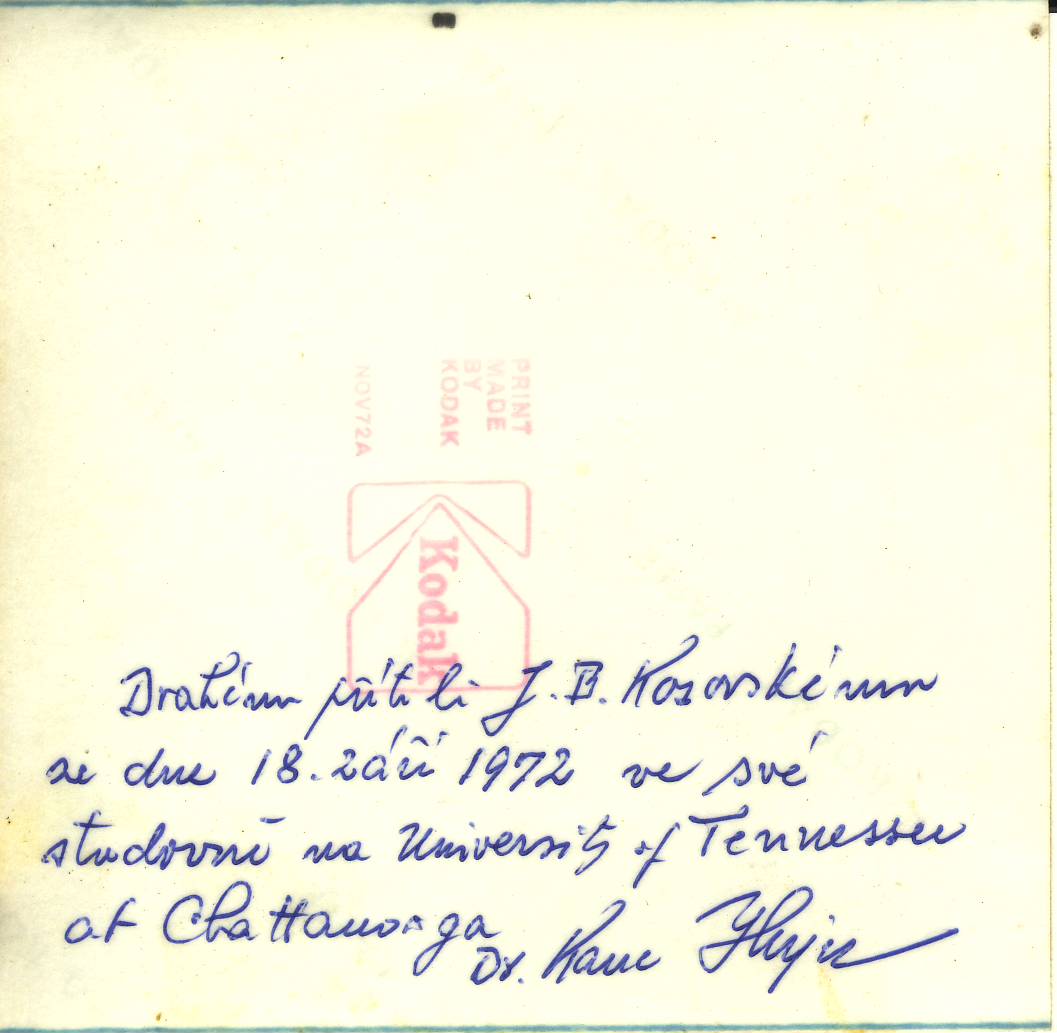 PRINT
MADE
BY
KODAK
NOV72A
Kodak
Drahému příteli J. B. Kozovskému
ze dne 18. září 1972 ve své
studovně na University of Tennessee
at Chattanooga
Dr.